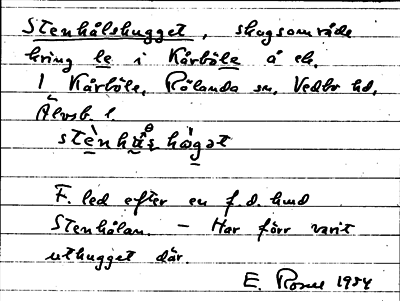 Stenhålshugget, skogsområde
kring le i Kårböle å ek.
1 Kårböle, Rölanda sn, Vedbo hd,
Älvsb. l.
F. led efter en f.d. hmd
Stenhålan. — Har förr varit
uthugget där.
E. Rosell 1934